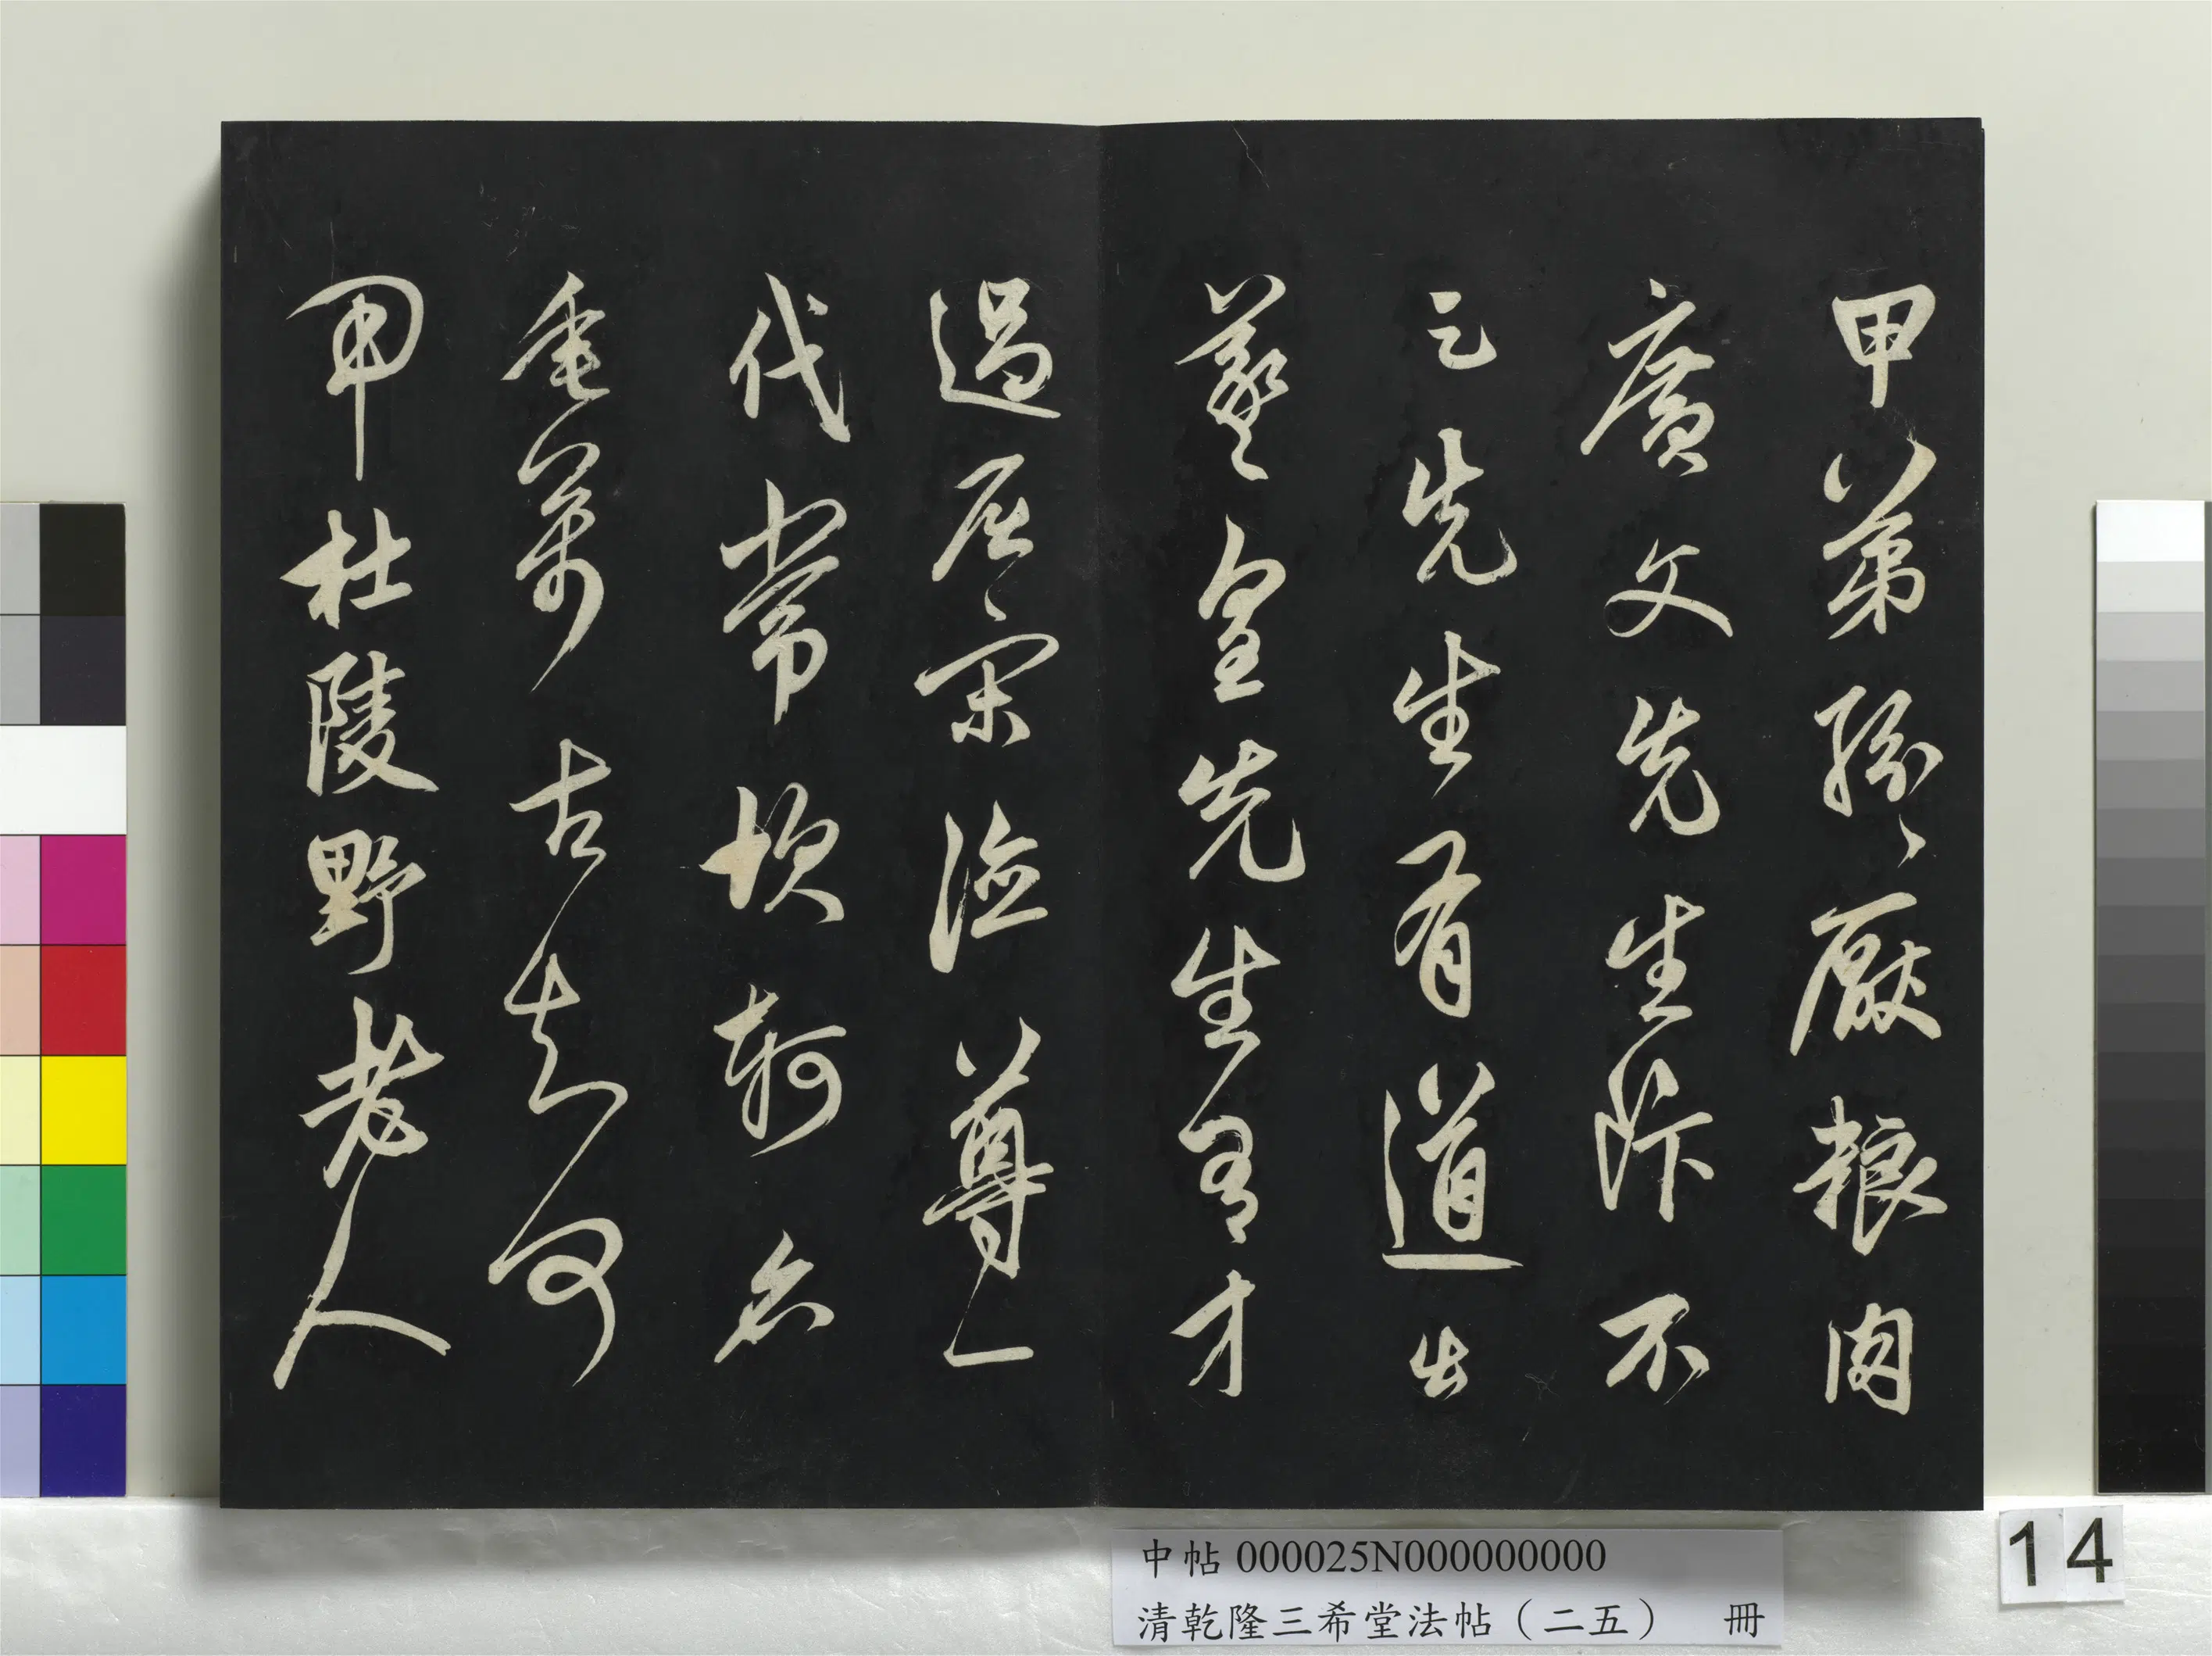 甲第紛〻厭粮肉
廣文先生飯不
足先生有道出
羲皇先生有才
過屈宋德尊一
代常坎軻名
垂萬古知何
用杜陵野老人
中帖 000025N000000000
清乾隆三希堂法帖（二五） 冊
14